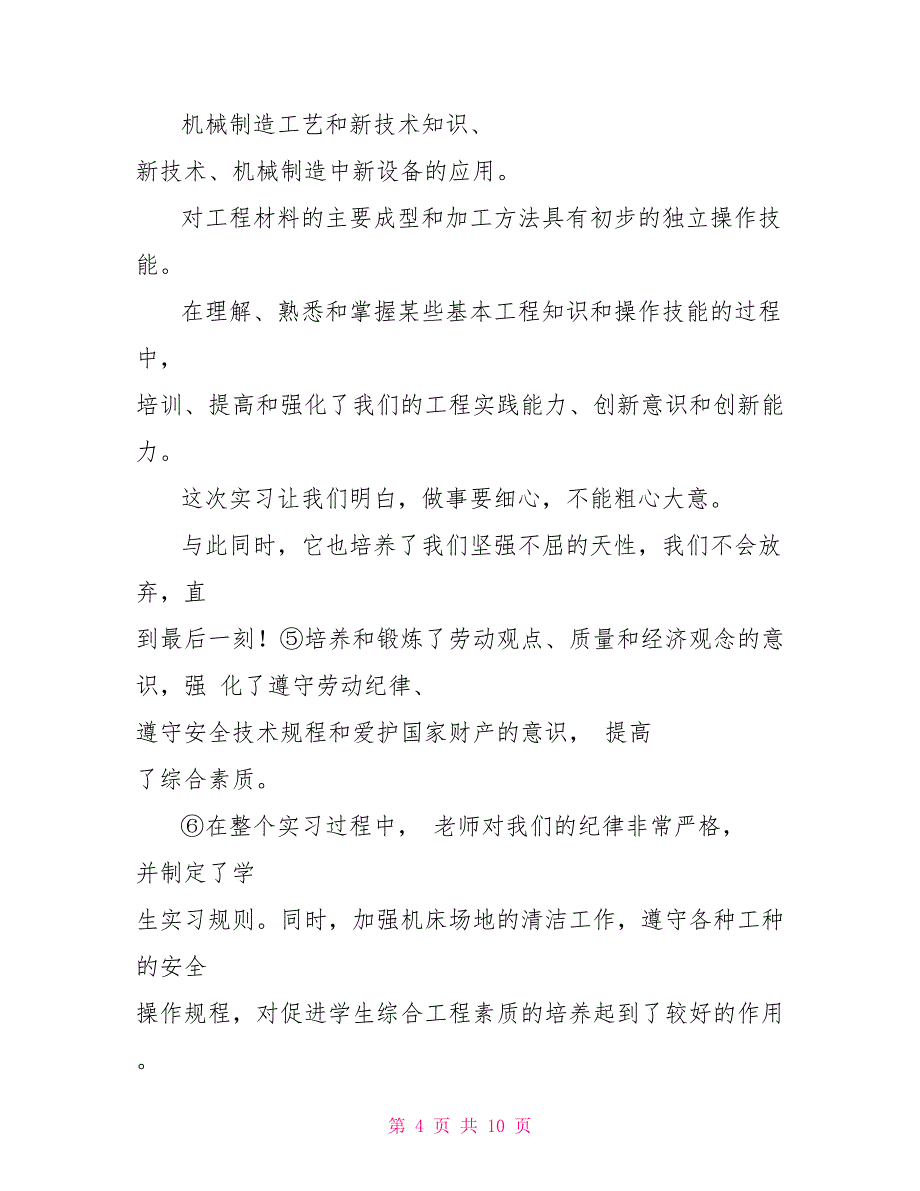 机械制造工艺和新技术知识、
新技术、机械制造中新设备的应用。
对工程材料的主要成型和加工方法具有初步的独立操作技
能。
在理解、熟悉和掌握某些基本工程知识和操作技能的过程
中，
培训、提高和强化了我们的工程实践能力、创新意识和创新能
力。
这次实习让我们明白，做事要细心，不能粗心大意。
与此同时，它也培养了我们坚强不屈的天性，我们不会放
弃，直
到最后一刻！⑤培养和锻炼了劳动观点、质量和经济观念的意
识，强 化了遵守劳动纪律、
遵守安全技术规程和爱护国家财产的意识， 提高
了综合素质。
⑥在整个实习过程中， 老师对我们的纪律非常严格，
并制定了学
生实习规则。同时，加强机床场地的清洁工作，遵守各种工种
的安全
操作规程，对促进学生综合工程素质的培养起到了较好的作用
。
第 4 页 共 10 页